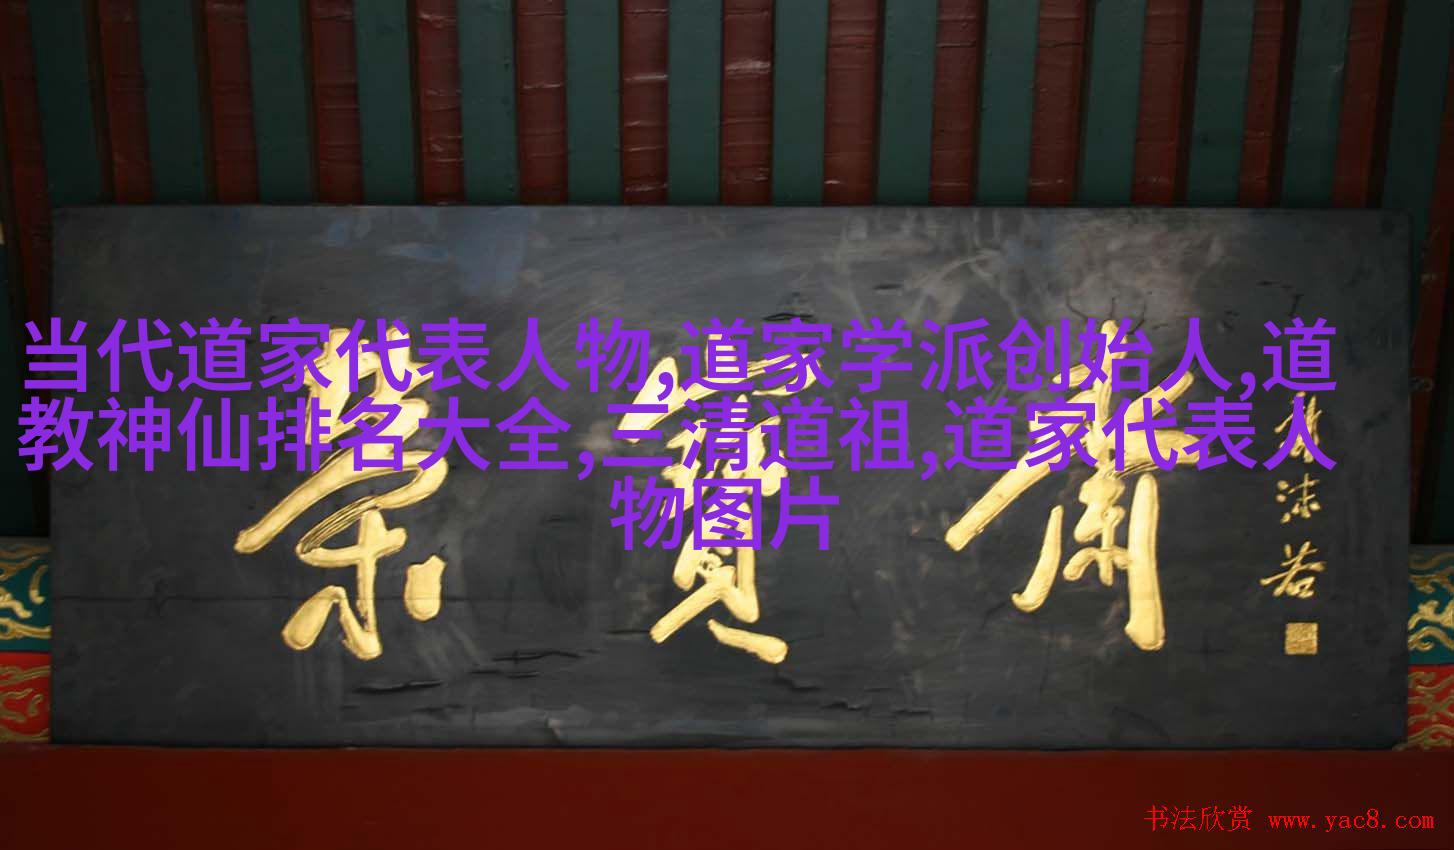 当代道家代表人物,道家学派创始人,道
教神仙排名大全,三清道祖,道家代表人
物图片
榮寶齋
郭沫若
书法欣赏 www.yac8.com